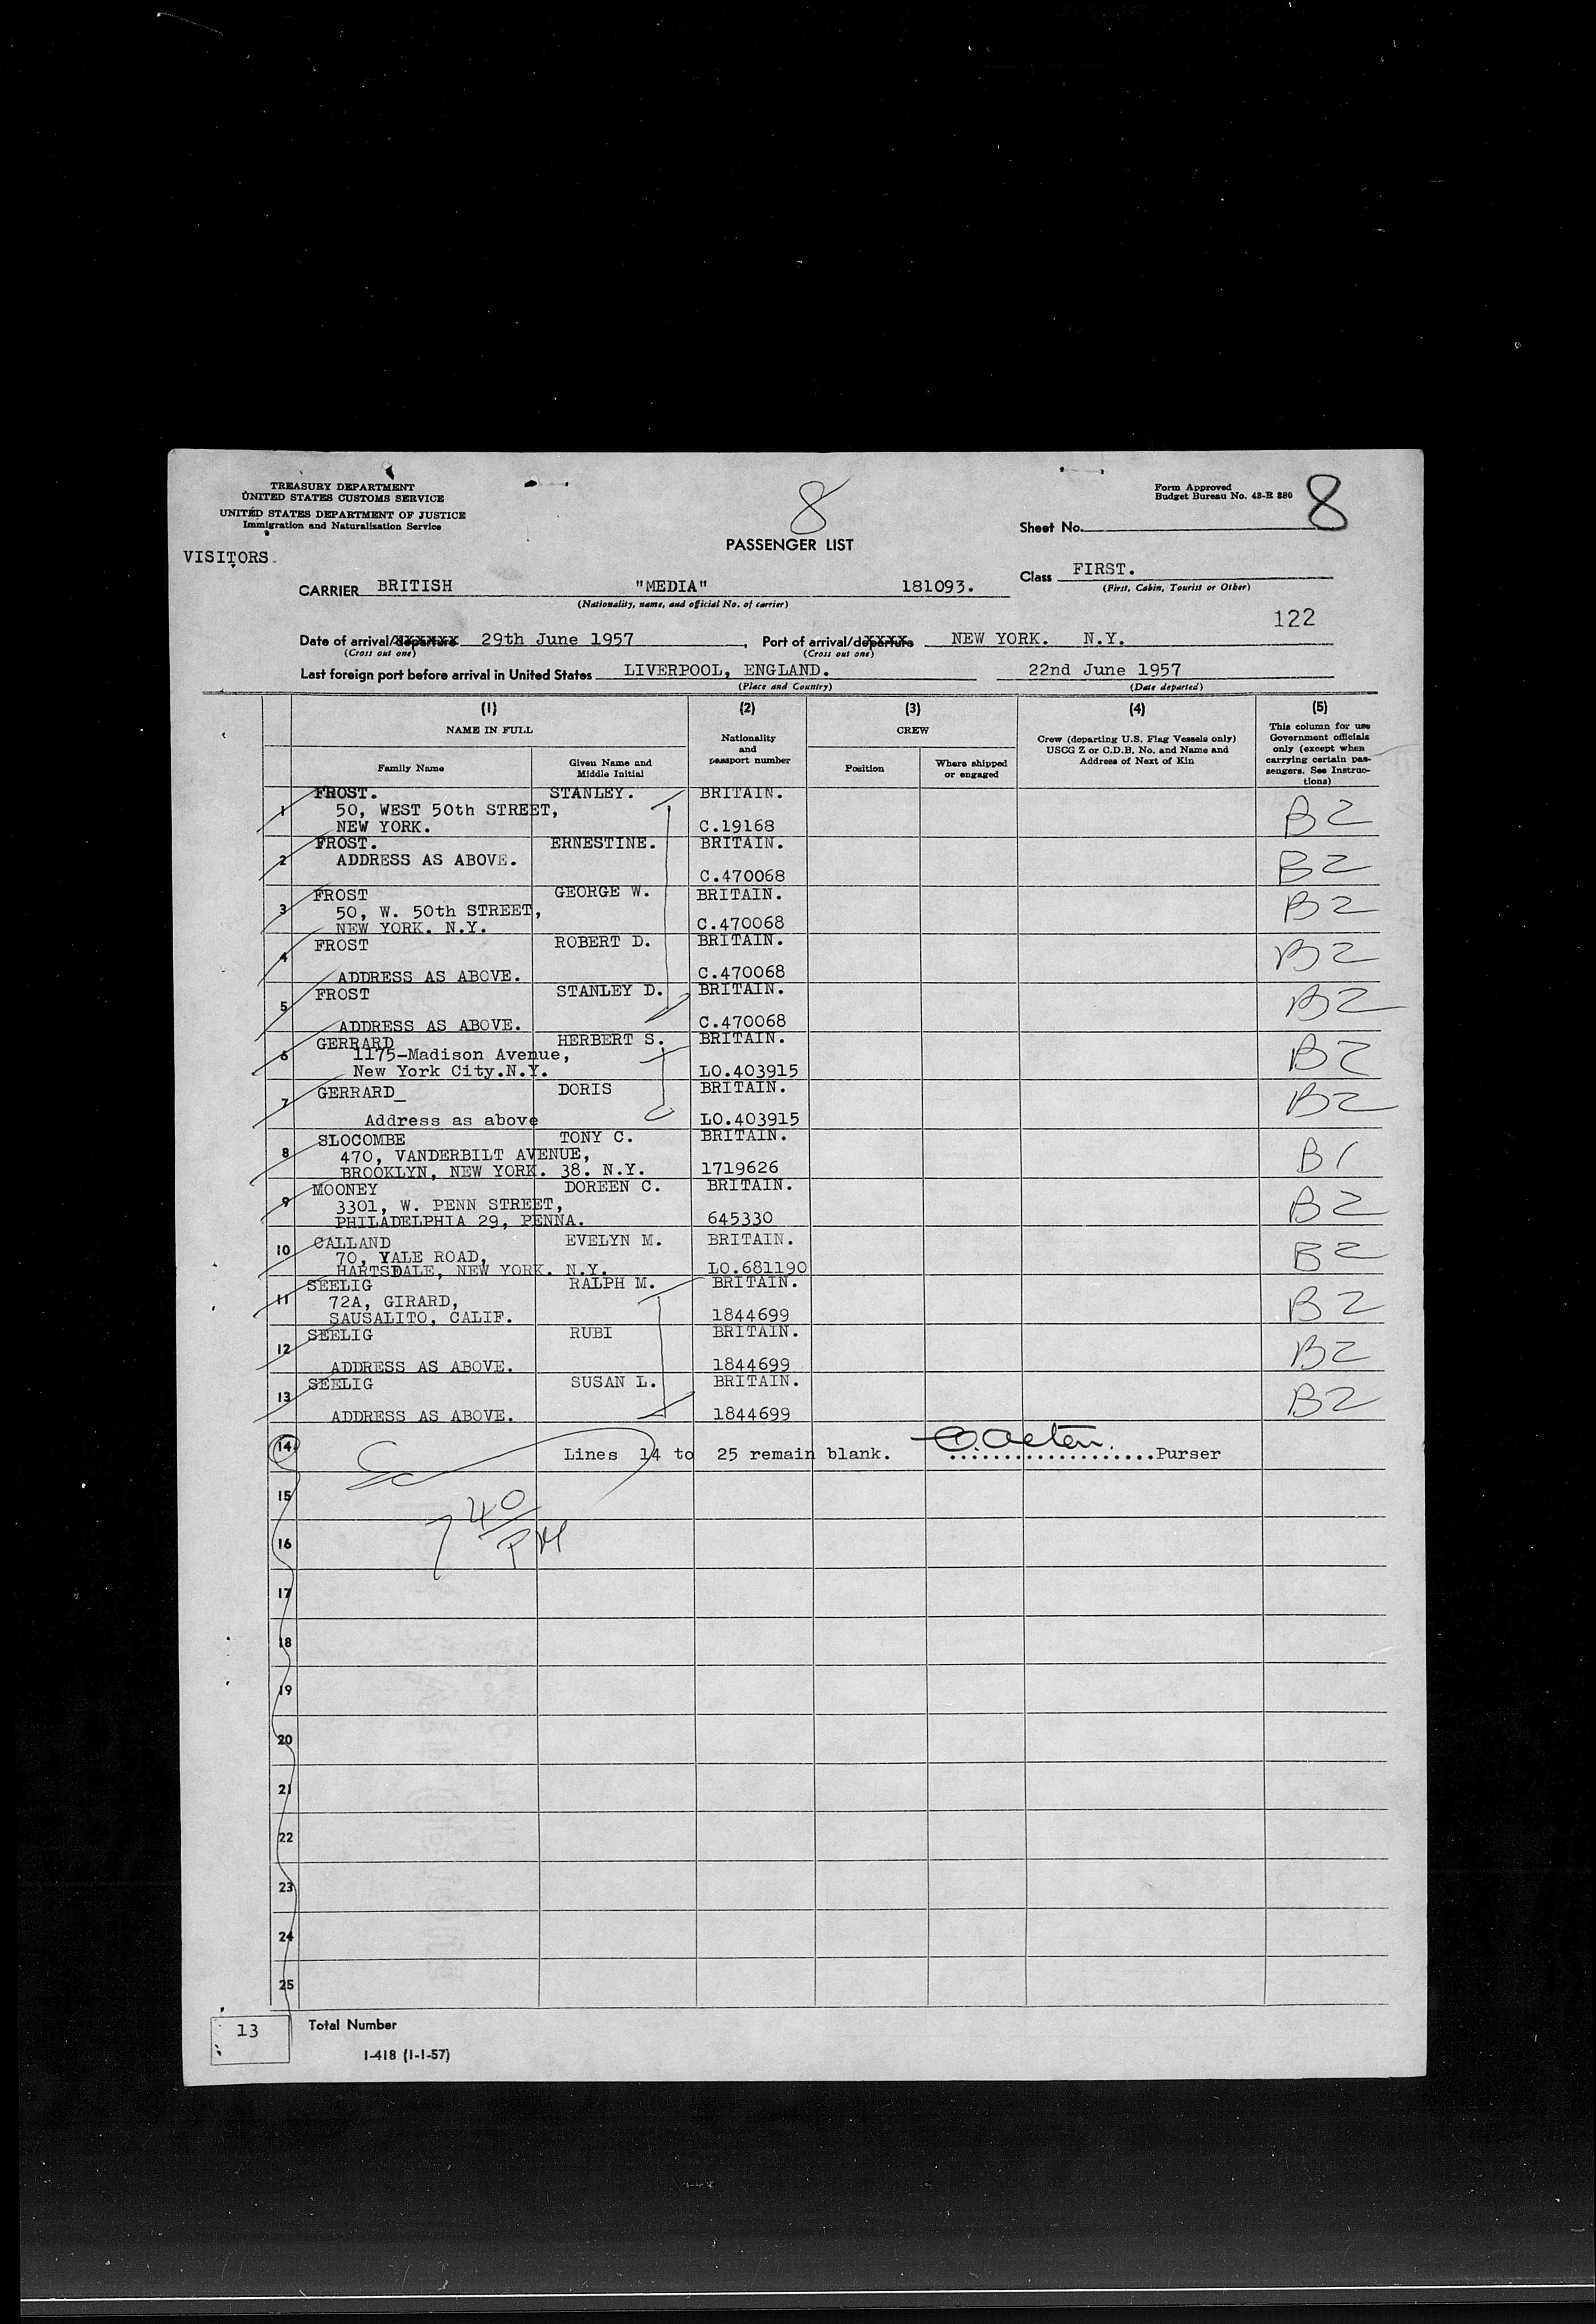 TREASURY DEPARTMENT
UNITED STATES CUSTOMS SERVICE
UNITED STATES DEPARTMENT OF JUSTICE
Immigration and Naturalization Service
8
Form Approved
Budget Bureau No. 43-R 380
Sheet No. 8
PASSENGER LIST
VISITORS.
CARRIER BRITISH "MEDIA" 181093.
(Nationality, name, and official No. of carrier)
Class FIRST.
(First, Cabin, Tourist or Other)
122
Date of arrival/departure 29th June 1957, Port of arrival/departure NEW YORK. N.Y.
(Cross out one) (Cross out one)
Last foreign port before arrival in United States LIVERPOOL, ENGLAND. 22nd June 1957
(Place and Country) (Date departed)
(1) (2) (3) (4) (5)
NAME IN FULL
Family Name
Given Name and Middle Initial
Nationality and passport number
CREW
Position
Where shipped or engaged
Crew (departing U.S. Flag Vessels only) USCG Z or C.D.B. No. and Name and Address of Next of Kin
This column for use Government officials only (except when carrying certain passengers. See Instructions)
1 FROST. STANLEY. BRITAIN. B2
50, WEST 50th STREET,
NEW YORK. C.19168
2 FROST. ERNESTINE. BRITAIN. B2
ADDRESS AS ABOVE.
C.470068
3 FROST GEORGE W. BRITAIN. B2
50, W. 50th STREET,
NEW YORK. N.Y. C.470068
4 FROST ROBERT D. BRITAIN. B2
ADDRESS AS ABOVE. C.470068
5 FROST STANLEY D. BRITAIN. B2
ADDRESS AS ABOVE. C.470068
6 GERRARD HERBERT S. BRITAIN. B2
1175-Madison Avenue,
New York City.N.Y. LO.403915
7 GERRARD_ DORIS BRITAIN. B2
Address as above LO.403915
8 SLOCOMBE TONY C. BRITAIN. B1
470, VANDERBILT AVENUE,
BROOKLYN, NEW YORK. 38. N.Y. 1719626
9 MOONEY DOREEN C. BRITAIN. B2
3301, W. PENN STREET,
PHILADELPHIA 29, PENNA. 645330
10 CALLAND EVELYN M. BRITAIN. B2
70, YALE ROAD,
HARTSDALE, NEW YORK. N.Y. LO.681190
11 SEELIG RALPH M. BRITAIN. B2
72A, GIRARD,
SAUSALITO, CALIF. 1844699
12 SEELIG RUBI BRITAIN. B2
ADDRESS AS ABOVE. 1844699
13 SEELIG SUSAN L. BRITAIN. B2
ADDRESS AS ABOVE. 1844699
14 Lines 14 to 25 remain blank. ....................Purser
15
7 40 PM
16
17
18
19
20
21
22
23
24
25
13 Total Number
I-418 (1-1-57)